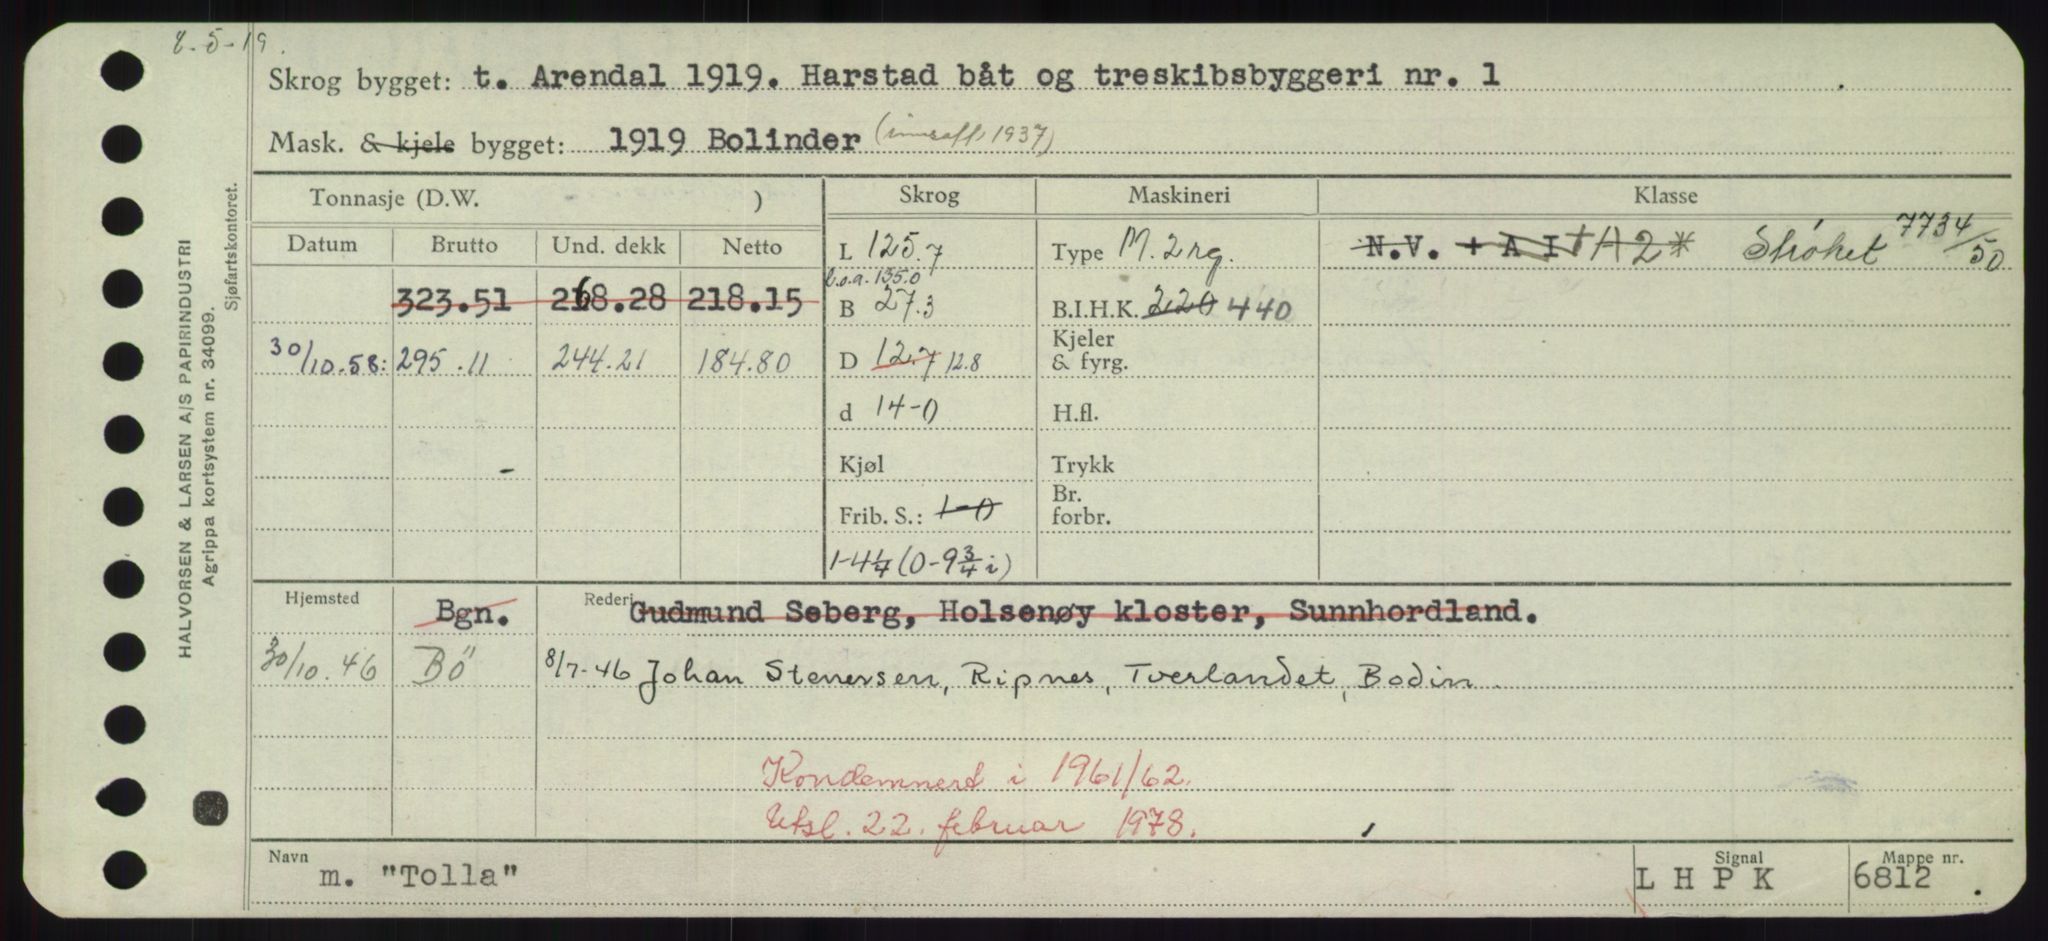 8-5-19.
Skrog bygget: t. Arendal 1919. Harstad båt og treskibsbyggeri nr. 1
Mask. & kjele bygget: 1919 Bolinder (innsatt 1937)
Tonnasje (D.W. ) Skrog Maskineri Klasse
Datum Brutto Und. dekk Netto L 125.7 Type M. 2 rg. N.V. + A I † A2* Strøket 7734/50
l.o.a. 135.0
323.51 268.28 218.15 B 27.3 B.I.H.K. 220 440
30/10.58: 295.11 244.21 184.80 D 12.7 12.8 Kjeler & fyrg.
d 14-0 H.fl.
Kjøl Trykk
Frib. S.: 1-0 Br. forbr.
1-4¼ (0-9¾ i)
Hjemsted Bgn. Rederi Gudmund Seberg, Holsenøy kloster, Sunnhordland.
30/10.46 BÖ 8/7-46 Johan Stenersen, Ripnes, Tverlandet, Bodin
Kondemnert i 1961/62.
Utsl. 22. februar 1978.
Navn m. "Tolla" Signal L H P K Mappe nr. 6812
HALVORSEN & LARSEN A/S PAPIRINDUSTRI
Agrippa kortsystem nr. 34099.
Sjøfartskontoret.